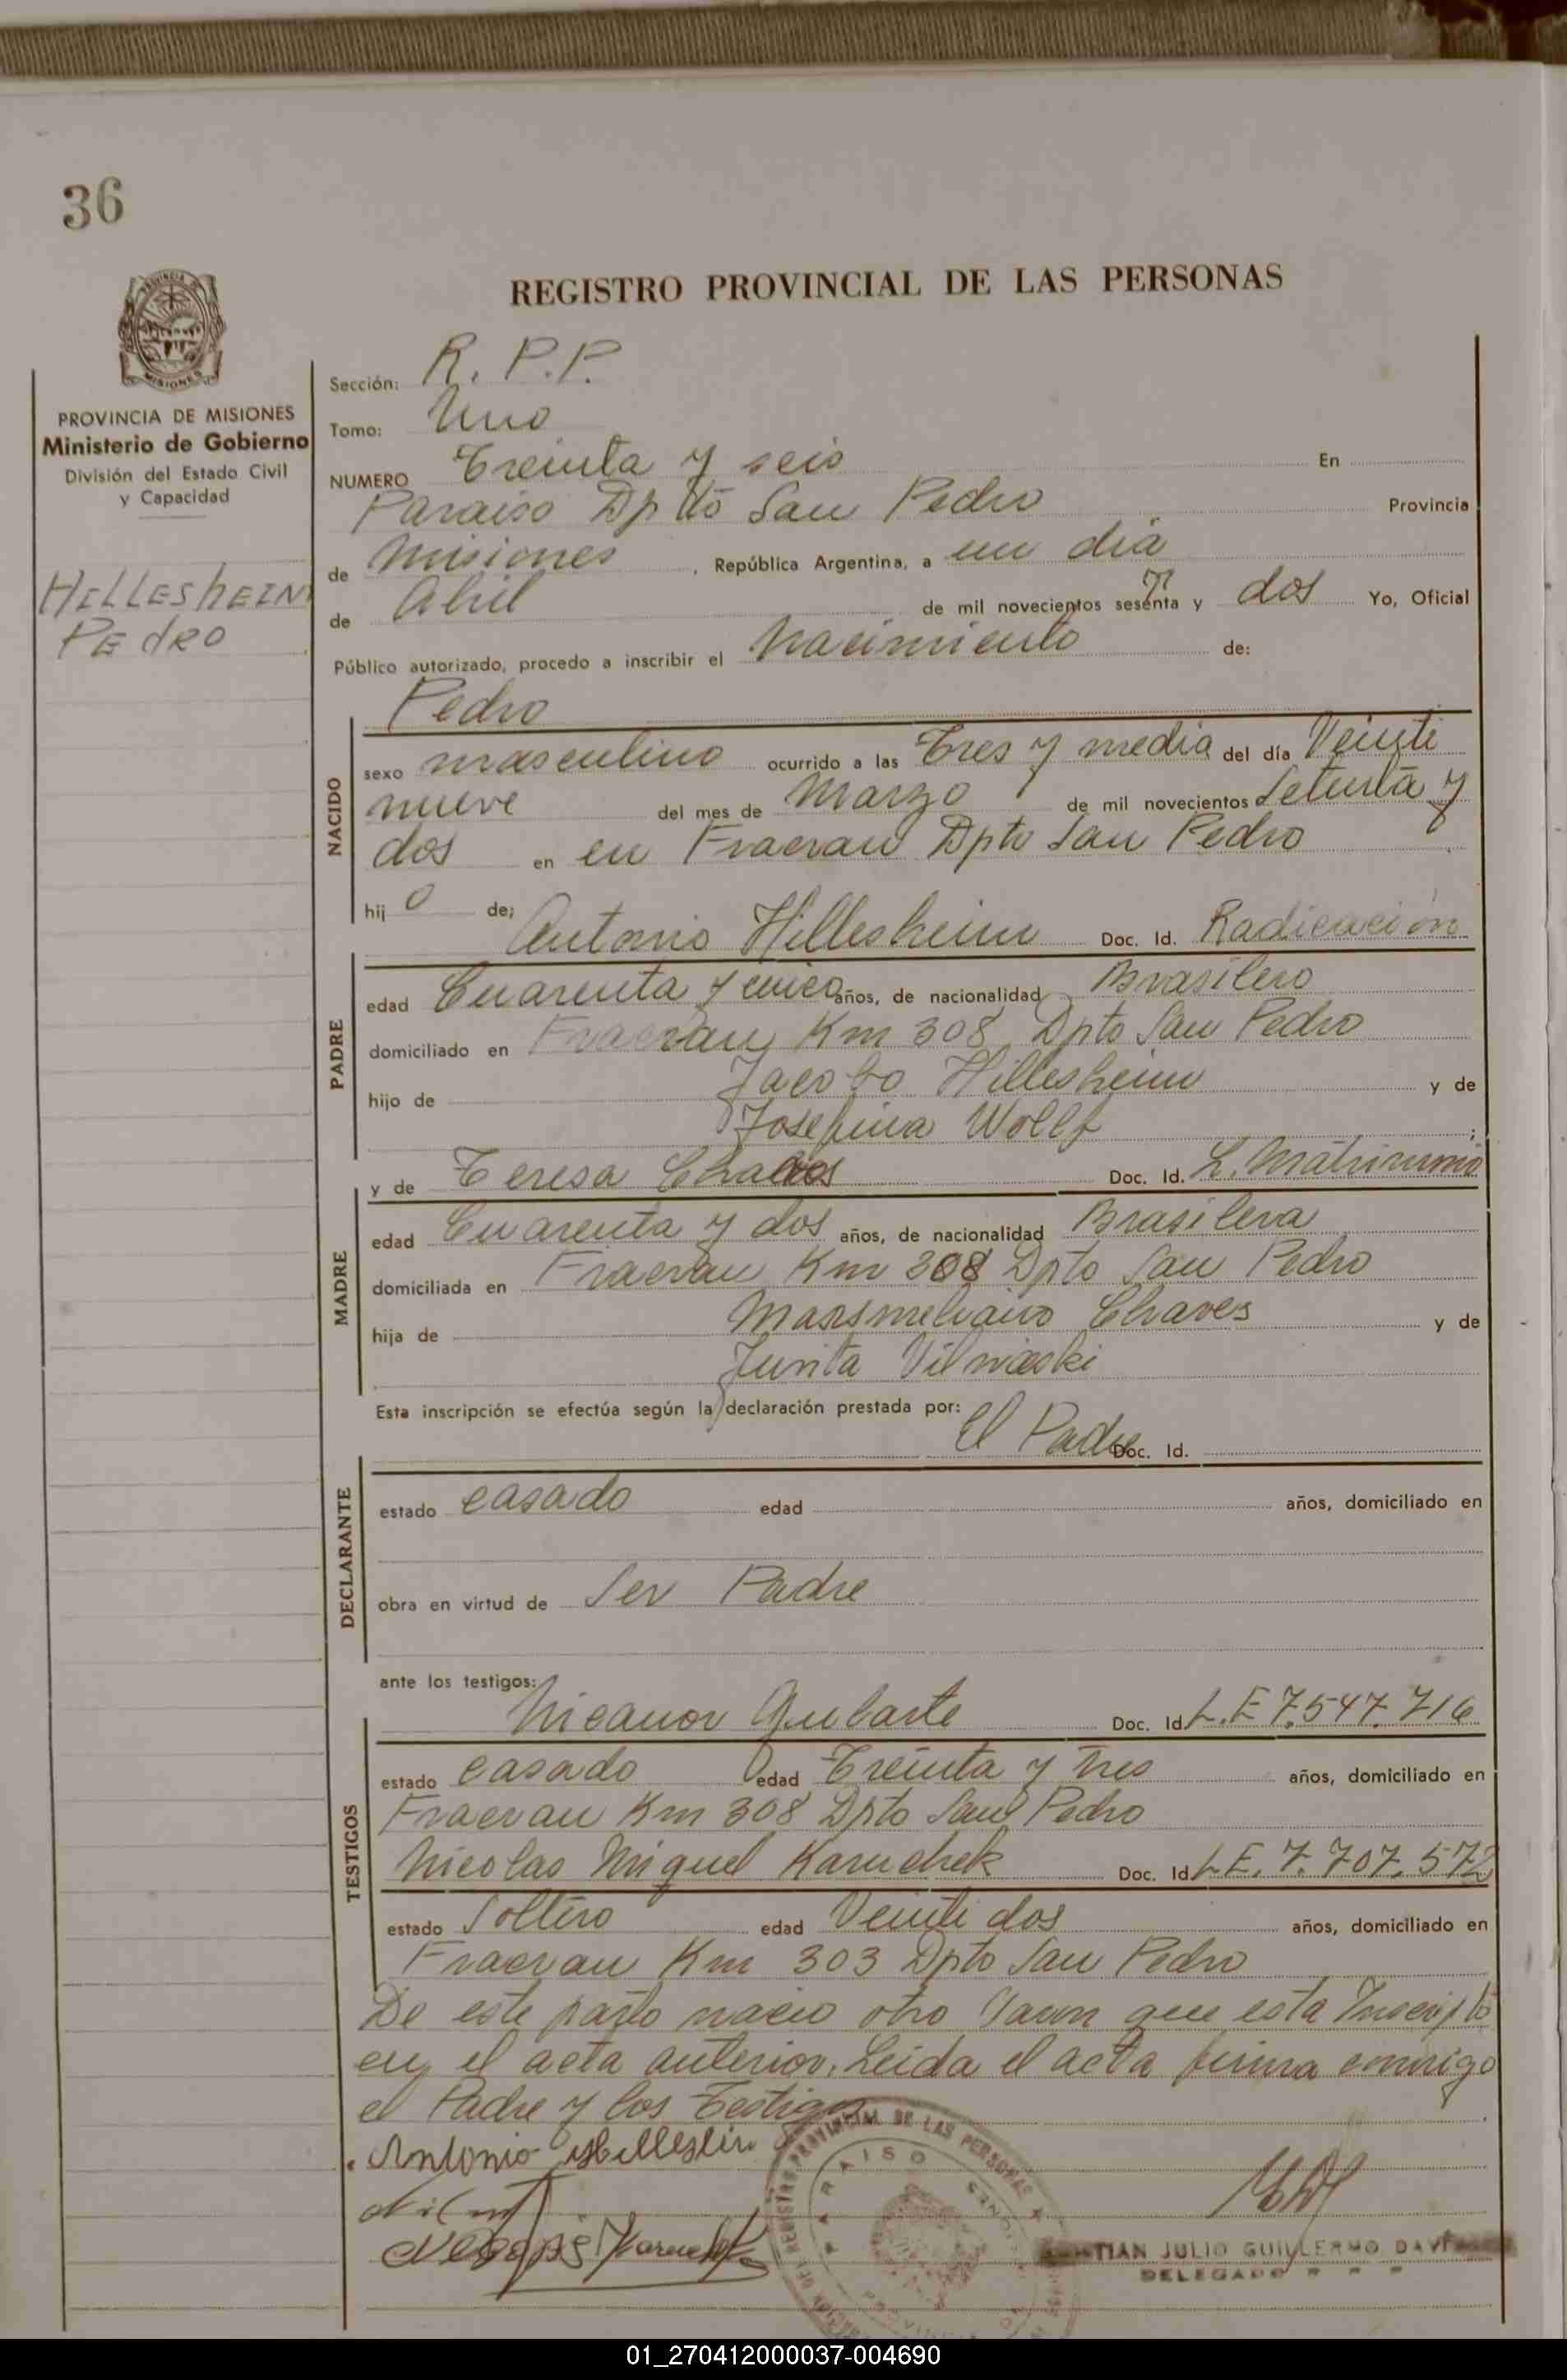 36
REGISTRO PROVINCIAL DE LAS PERSONAS
PROVINCIA DE MISIONES
Ministerio de Gobierno
División del Estado Civil
y Capacidad
HILLESHEIN
PEdRO
Sección: R. P. P.
Tomo: Uno
NUMERO Treinta y seis En
Paraiso Dpto San Pedro Provincia
de Misiones, República Argentina, a un dia
de Abril de mil novecientos sesenta y dos Yo, Oficial
Público autorizado, procedo a inscribir el Nacimiento de:
Pedro
NACIDO
sexo masculino ocurrido a las Tres y media del día Veinti
nueve del mes de Marzo de mil novecientos Setenta y
dos en en Fracran Dpto San Pedro
hij o de;
Antonio Hillesheim Doc. Id. Radicación
PADRE
edad Cuarenta y cinco años, de nacionalidad Brasilero
domiciliado en Fracran Km 308 Dpto San Pedro
hijo de Jacobo Hillesheim y de
Josefina Wollf ;
y de Teresa Chaves Doc. Id. L. Matrimonio
MADRE
edad Cuarenta y dos años, de nacionalidad Brasilera
domiciliada en Fracran Km 308 Dpto San Pedro
hija de Chaves y de
Junita
Esta inscripción se efectúa según la declaración prestada por:
El Padre Doc. Id.
DECLARANTE
estado casado edad años, domiciliado en
obra en virtud de Ser Padre
ante los testigos:
Nicanor Gularte Doc. Id. L.E 7.547.716
TESTIGOS
estado casado edad Treinta y tres años, domiciliado en
Fracran Km 308 Dpto San Pedro
Nicolas Miguel Karuchek Doc. Id. L.E. 7.707.572
estado Soltero edad Veinti dos años, domiciliado en
Fracran Km 303 Dpto San Pedro
De este parto nacio otro Varon que esta Inscripto
en el acta anterior. Leida el acta firma conmigo
el Padre y los Testigos
Antonio
REGISTRO PROVINCIAL DE LAS PERSONAS
PARAISO
JULIO GUILLERMO
DELEGADO
01_270412000037-004690